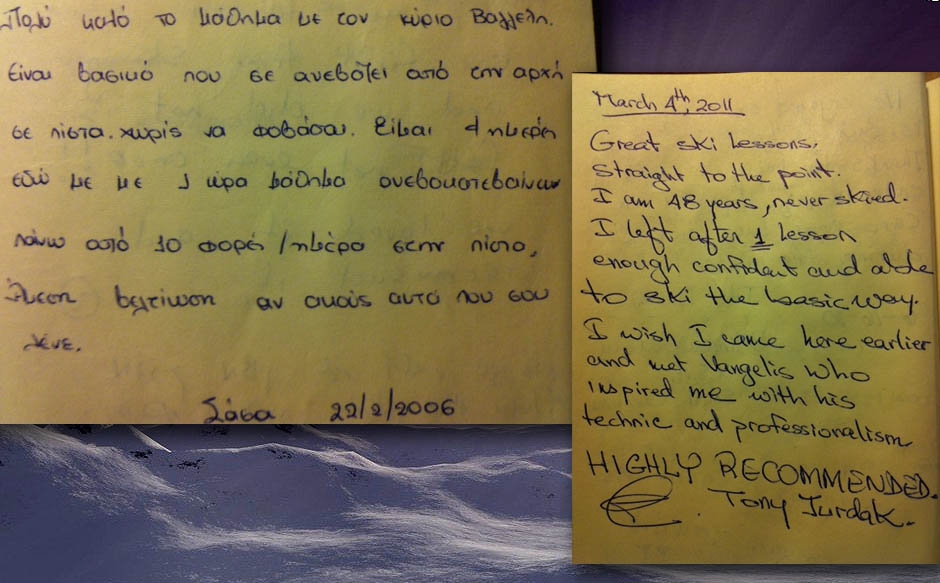 Πολύ καλό το μάθημα με τον κύριο Βαγγέλη.
Είναι βασικό που σε ανεβάζει από την αρχή
σε πίστα. χωρίς να φοβάσαι. Είμαι 4η μέρα
εδώ με με 1 ώρα μάθημα ανεβοκατεβαίνω
πάνω από 10 φορές /ημέρα στην πίστα,
Άμεση βελτίωση αν ακούς αυτό που σου
λένε.
Σάσα 22/2/2006
March 4th, 2011
Great ski lessons,
straight to the point.
I am 48 years, never skied.
I left after 1 lesson
enough confident and able
to ski the basic way.
I wish I came here earlier
and met Vangelis who
inspired me with his
technic and professionalism
HIGHLY RECOMMENDED.
Tony Jurdak.